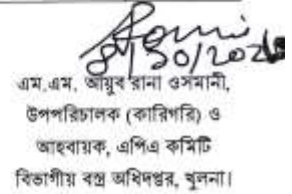 এম.এম. আয়ুব রানা ওসমানী,
উপপরিচালক (কারিগরি) ও
আহবায়ক, এপিএ কমিটি
বিভাগীয় বস্ত্র অধিদপ্তর, খুলনা।